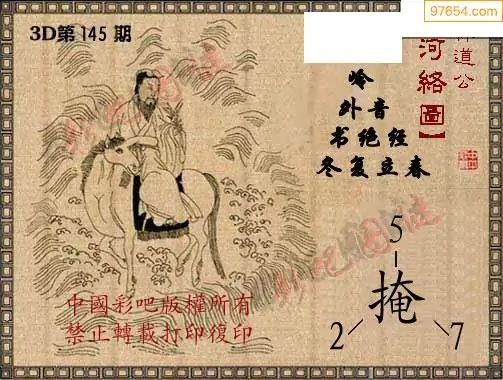 97654.com
3D第145期
道公
河絡圖】
岭
外音
书绝经
冬复立春
5
掩
2 7
中國彩吧版權所有
禁止轉載打印復印